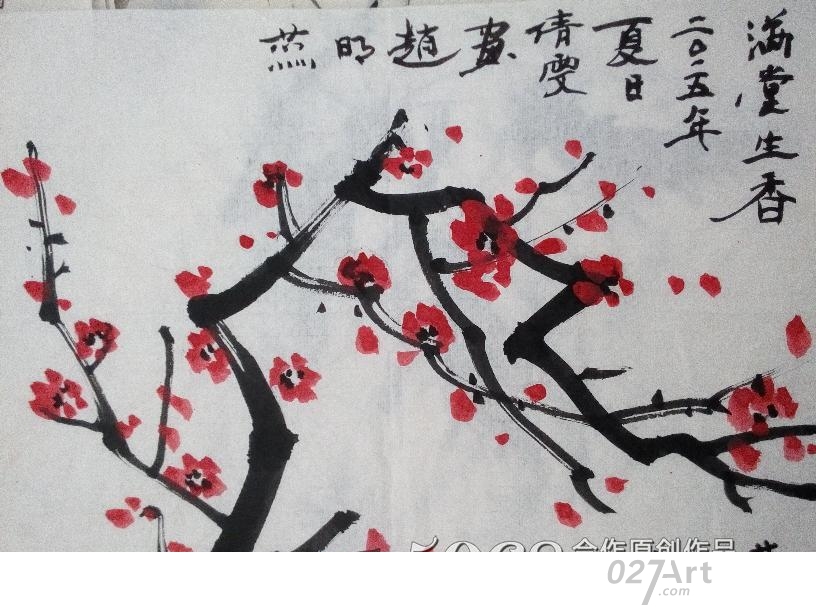 满堂生香
二〇一五年
夏日
倩雯
画
趙
明
燕
合作原创作品
027Art
.com